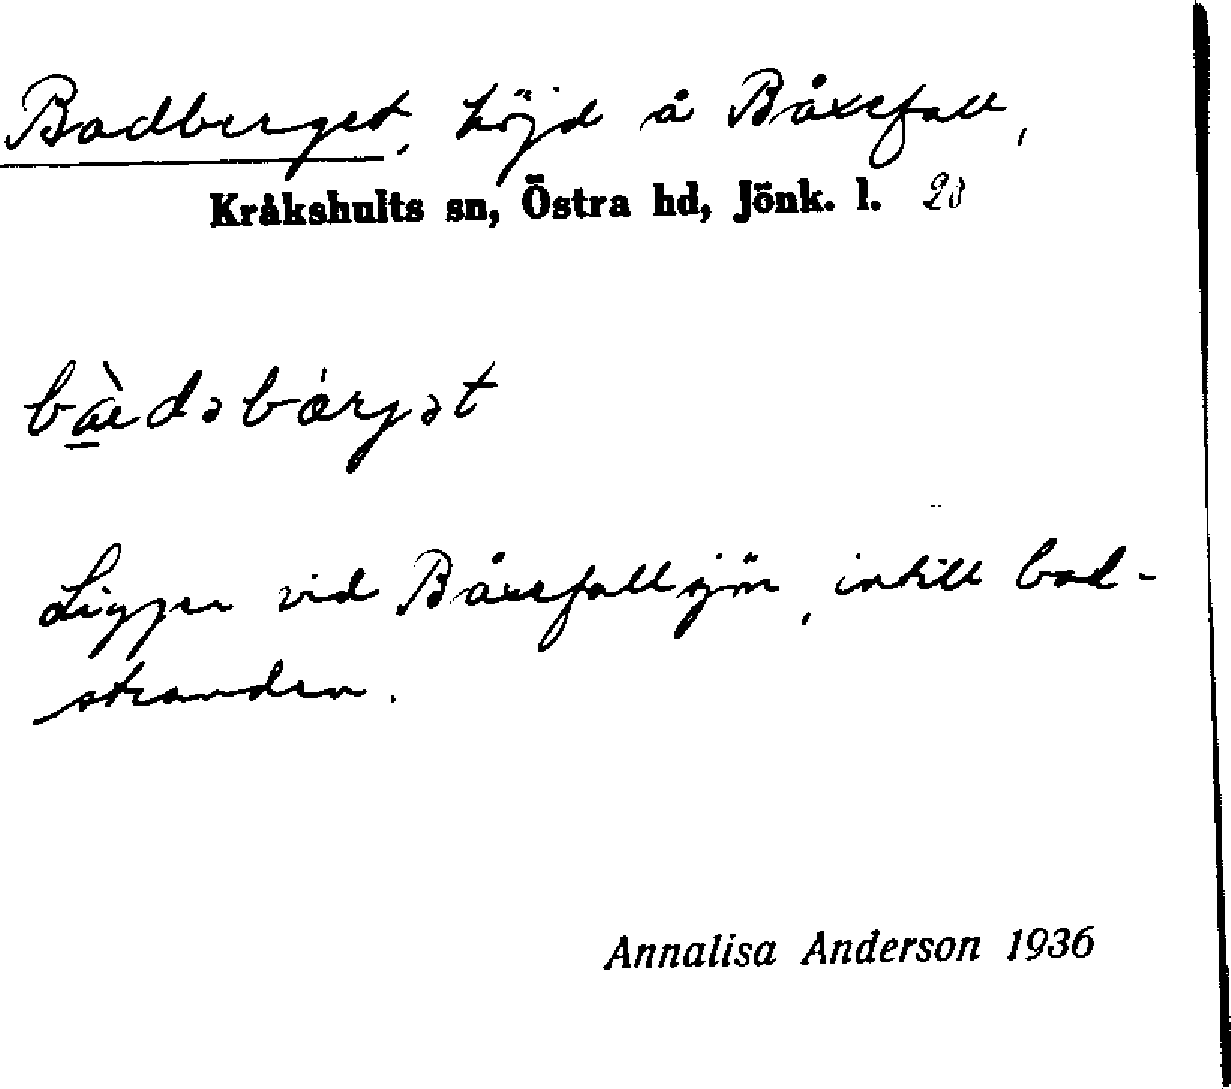 Badberget, höjd å Båxefall,
Kråkshults sn, Östra hd, Jönk. l. 28
bàedəbárjət
Ligger vid Båxefallsjön, intill bad-
stranden.
Annalisa Anderson 1936